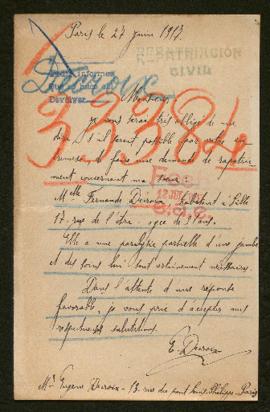 Paris le 27 juin 1917
REPATRIACIÓN
CIVIL
Decroix
Monsieur,
333842
je vous serais très obligé de me
dire s'il serait possible par votre
faire une demande de rapatrie
ment concernant ma
Melle Fernande Decroix habitant à Lille
17 rue de
Elle a une paralysie partielle d'une jambe
et des soins lui sont extrêmement nécessaires.
Dans l'attente d'une réponse
favorable, je vous prie d'accepter mes
respectueuses salutations.
E. Decroix
Mr Eugène Decroix - 13 rue du pont Louis Philippe - Paris